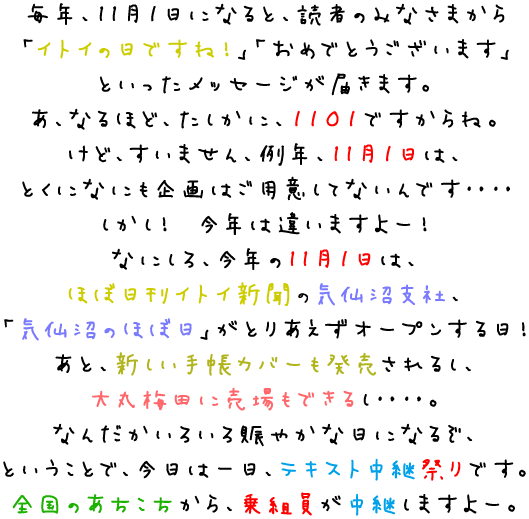 毎年、11月1日になると、読者のみなさまから
「イトイの日ですね！」「おめでとうございます」
といったメッセージが届きます。
あ、なるほど、たしかに、1101ですからね。
けど、すいません、例年、11月1日は、
とくになにも企画はご用意してないんです・・・・
しかし！　今年は違いますよー！
なにしろ、今年の11月1日は、
ほぼ日刊イトイ新聞の気仙沼支社、
「気仙沼のほぼ日」がとりあえずオープンする日！
あと、新しい手帳カバーも発売されるし、
大丸梅田に売場もできるし・・・・。
なんだかいろいろ賑やかな日になるぞ、
ということで、今日は一日、テキスト中継祭りです。
全国のあちこちから、乗組員が中継しますよー。